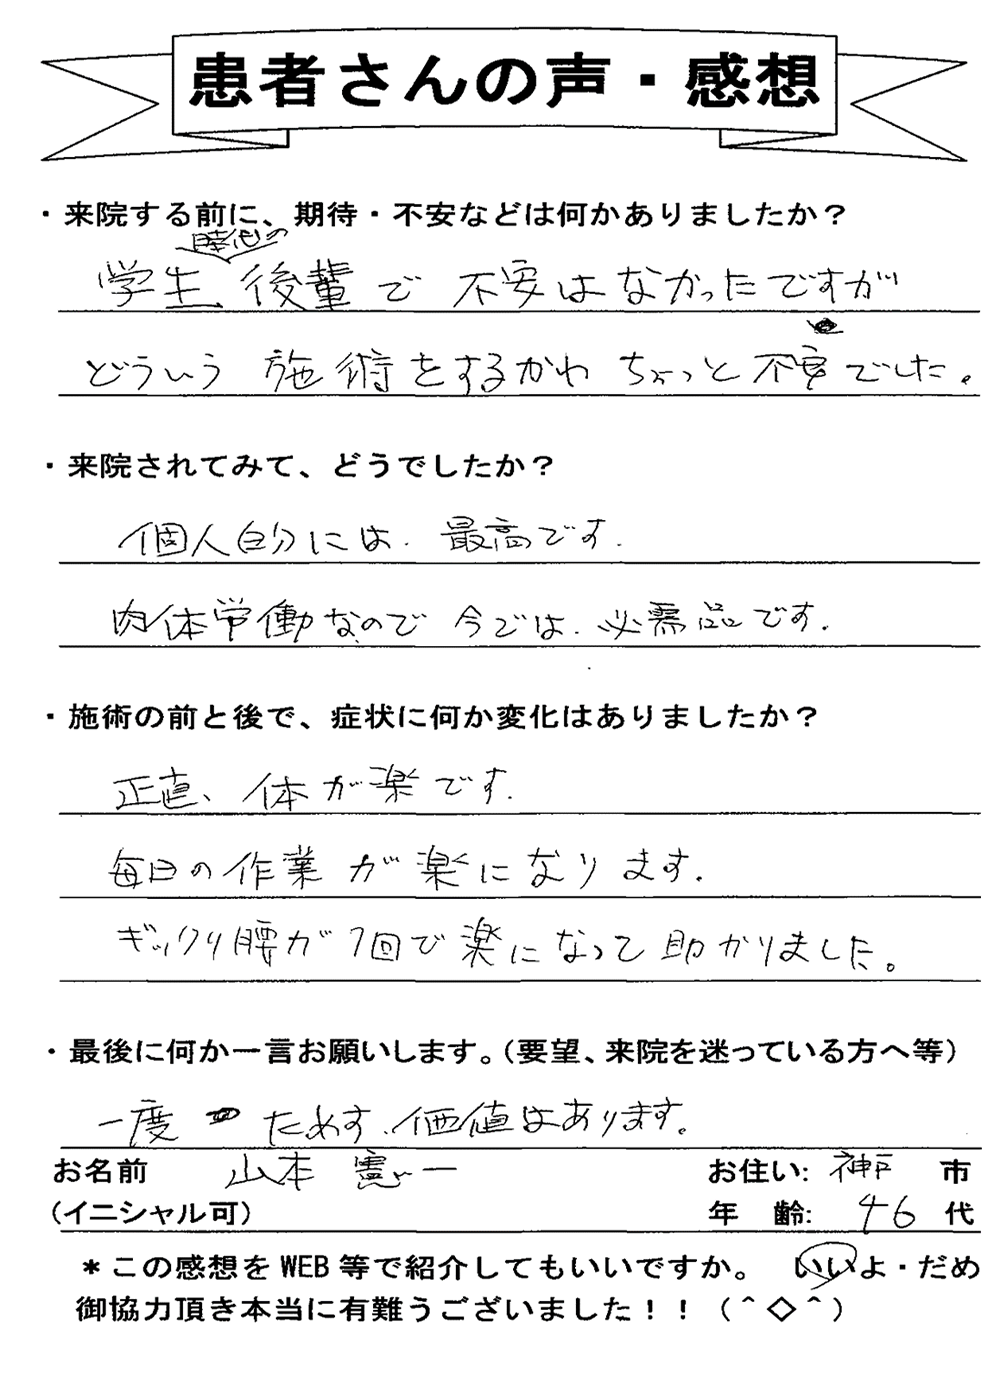 患者さんの声・感想
・来院する前に、期待・不安などは何かありましたか？
時代の
学生 後輩で 不安はなかったですが
どういう 施術をするかわ ちょっと 不安でした。
・来院されてみて、どうでしたか？
個人自分には. 最高です.
肉体労働なので 今では. 必需品です.
・施術の前と後で、症状に何か変化はありましたか？
正直、体が楽です.
毎日の作業 が 楽になり ます.
ギックリ腰が 1回で楽になって 助かりました。
・最後に何か一言お願いします。（要望、来院を迷っている方へ等）
一度 ためす.価値はあります。
お名前 山本 憲一 お住い: 神戸 市
（イニシャル可） 年 齢: 46 代
＊この感想を WEB 等で紹介してもいいですか。 いいよ・だめ
御協力頂き本当に有難うございました！！（＾◇＾）